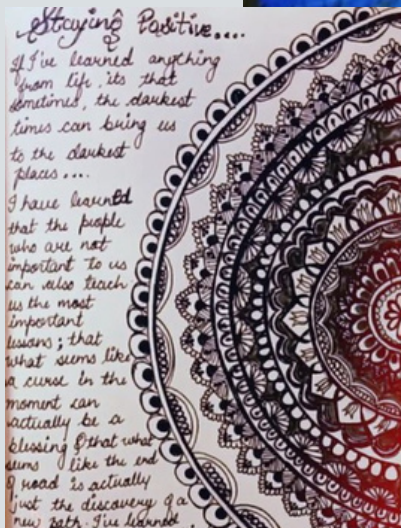 Staying Positive....
If I've learned anything
from life, its that
sometimes, the darkest
times can bring us
to the darkest
places....
I have learned
that the people
who are not
important to us
can also teach
us the most
important
lessons; that
what seems like
a curse in the
moment can
actually be a
blessing & that what
seems like the end
of road is actually
just the discovery of a
new path. I've learned